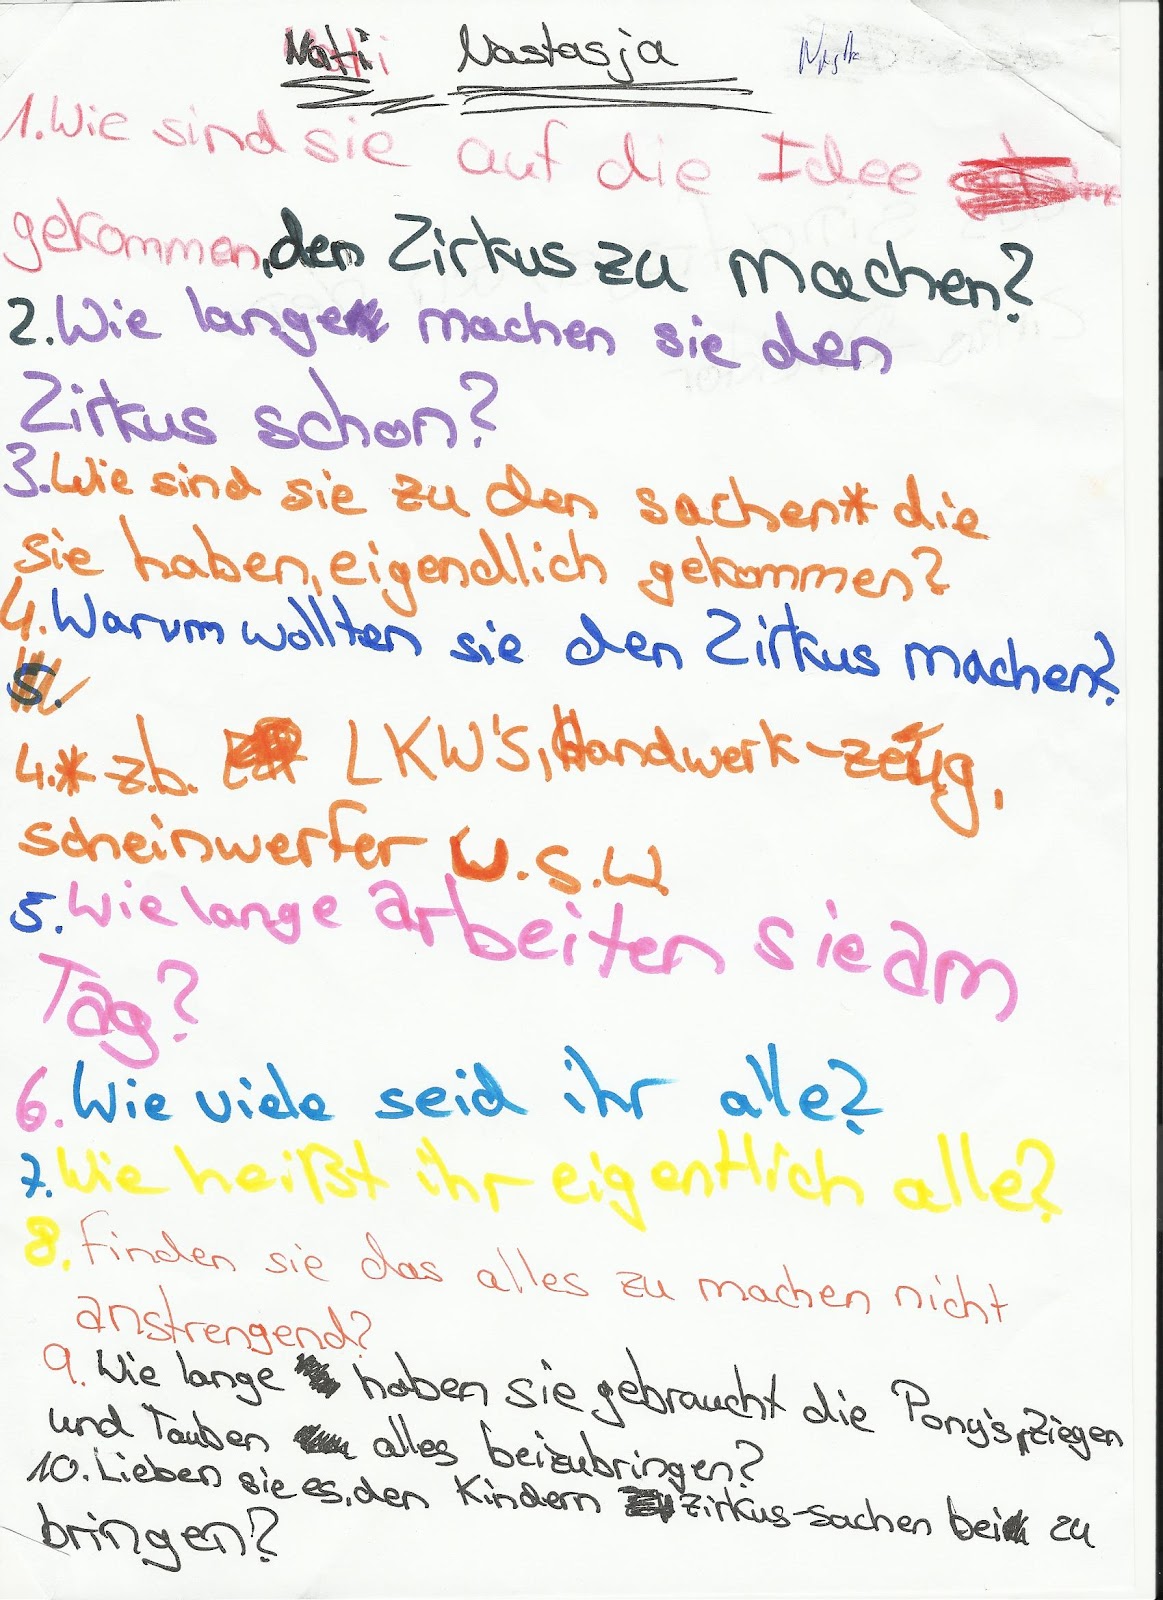 Nati Nastasja
1. Wie sind sie auf die Idee
gekommen, den Zirkus zu machen?
2. Wie lange machen sie den
Zirkus schon?
3. Wie sind sie zu den sachen* die
sie haben, eigendlich gekommen?
4. Warum wollten sie den Zirkus machen?
5.
4.* z.b. LKW's, Handwerk-zeug,
scheinwerfer u.s.w
5. Wie lange arbeiten sie am
Tag?
6. Wie viele seid ihr alle?
7. Wie heißt ihr eigentlich alle?
8. Finden sie das alles zu machen nicht
anstrengend?
9. Wie lange haben sie gebraucht die Pony's, Ziegen
und Tauben alles beizubringen?
10. Lieben sie es, den Kindern zirkus-sachen bei zu
bringen?